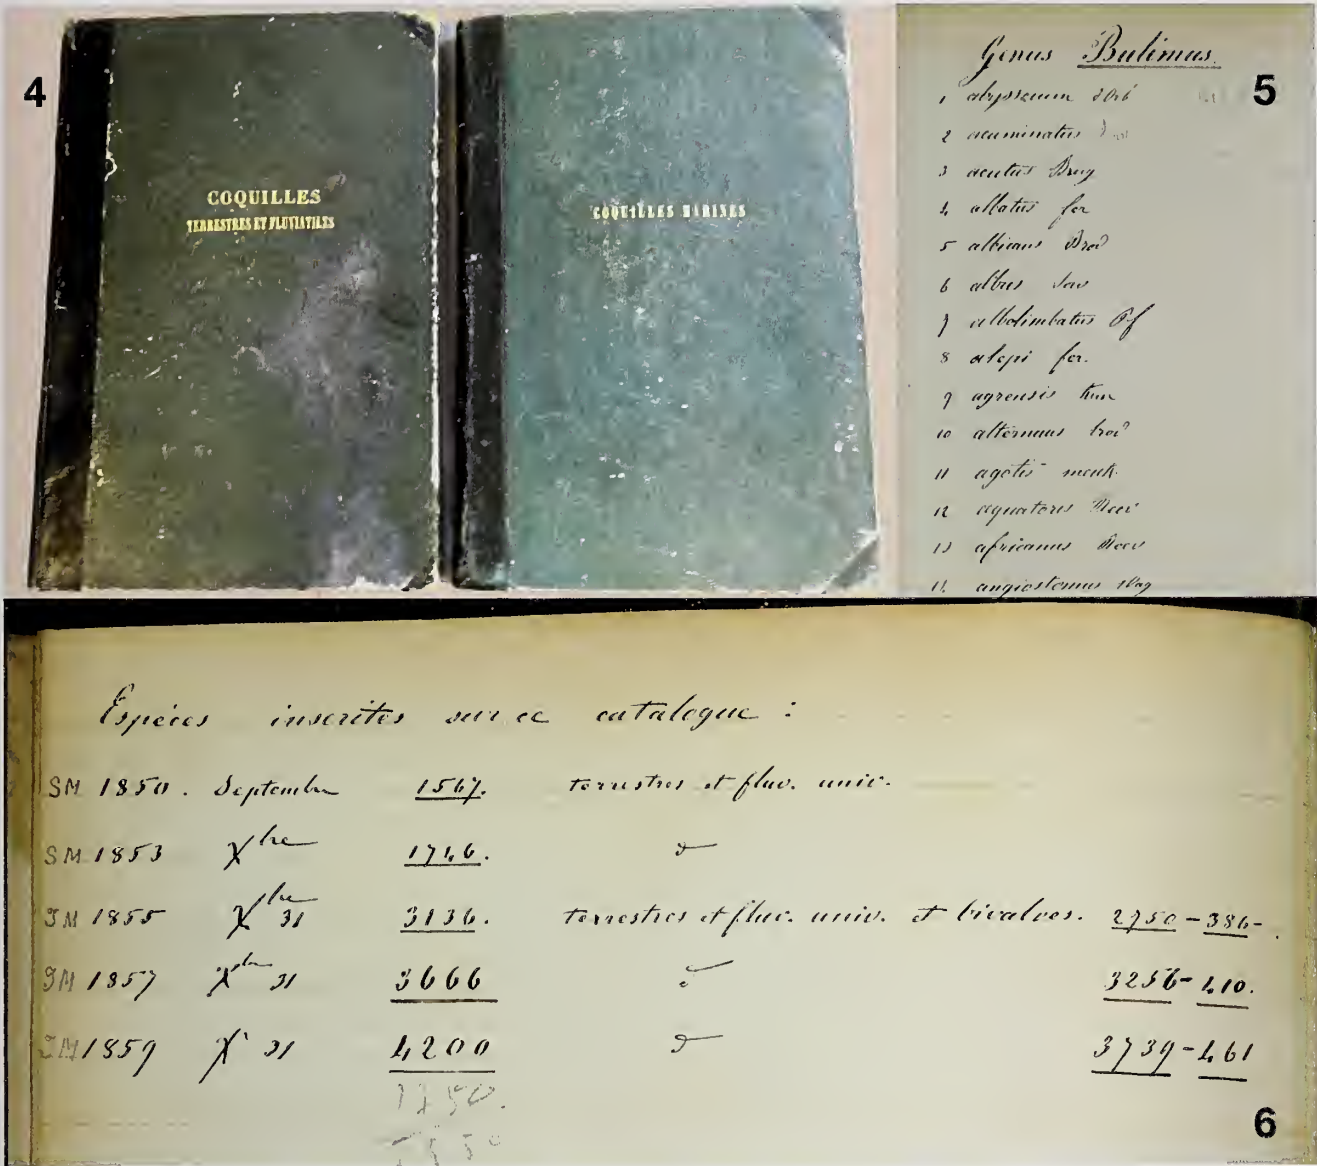 4
COQUILLES
TERRESTRES ET FLUVIATILES
COQUILLES MARINES
5
Genus Bulimus.
1 abyssorum d'Orb
2 acuminatus
3 acutus Brug
4 albatus fer
5 albicans Brod
6 albus Sow
7 albolimbatus Pf
8 alopi fer.
9 agrensis
10 alternans brod
11 agotis menk.
12 aquatoris Reev
13 africanus Reev
14 angiostomus Wag
Espèces inscrites sur ce catalogue :
SM 1850. Septembre 1567. terrestres et fluv. univ.
SM 1853 Xbre 1746. d
JM 1855 Xbre 31 3136. terrestres et fluv. univ. et bivalves. 2750-386-.
JM 1857 Xbre 31 3666 d 3256-410.
JM 1859 X 31 4200 d 3739-461
6